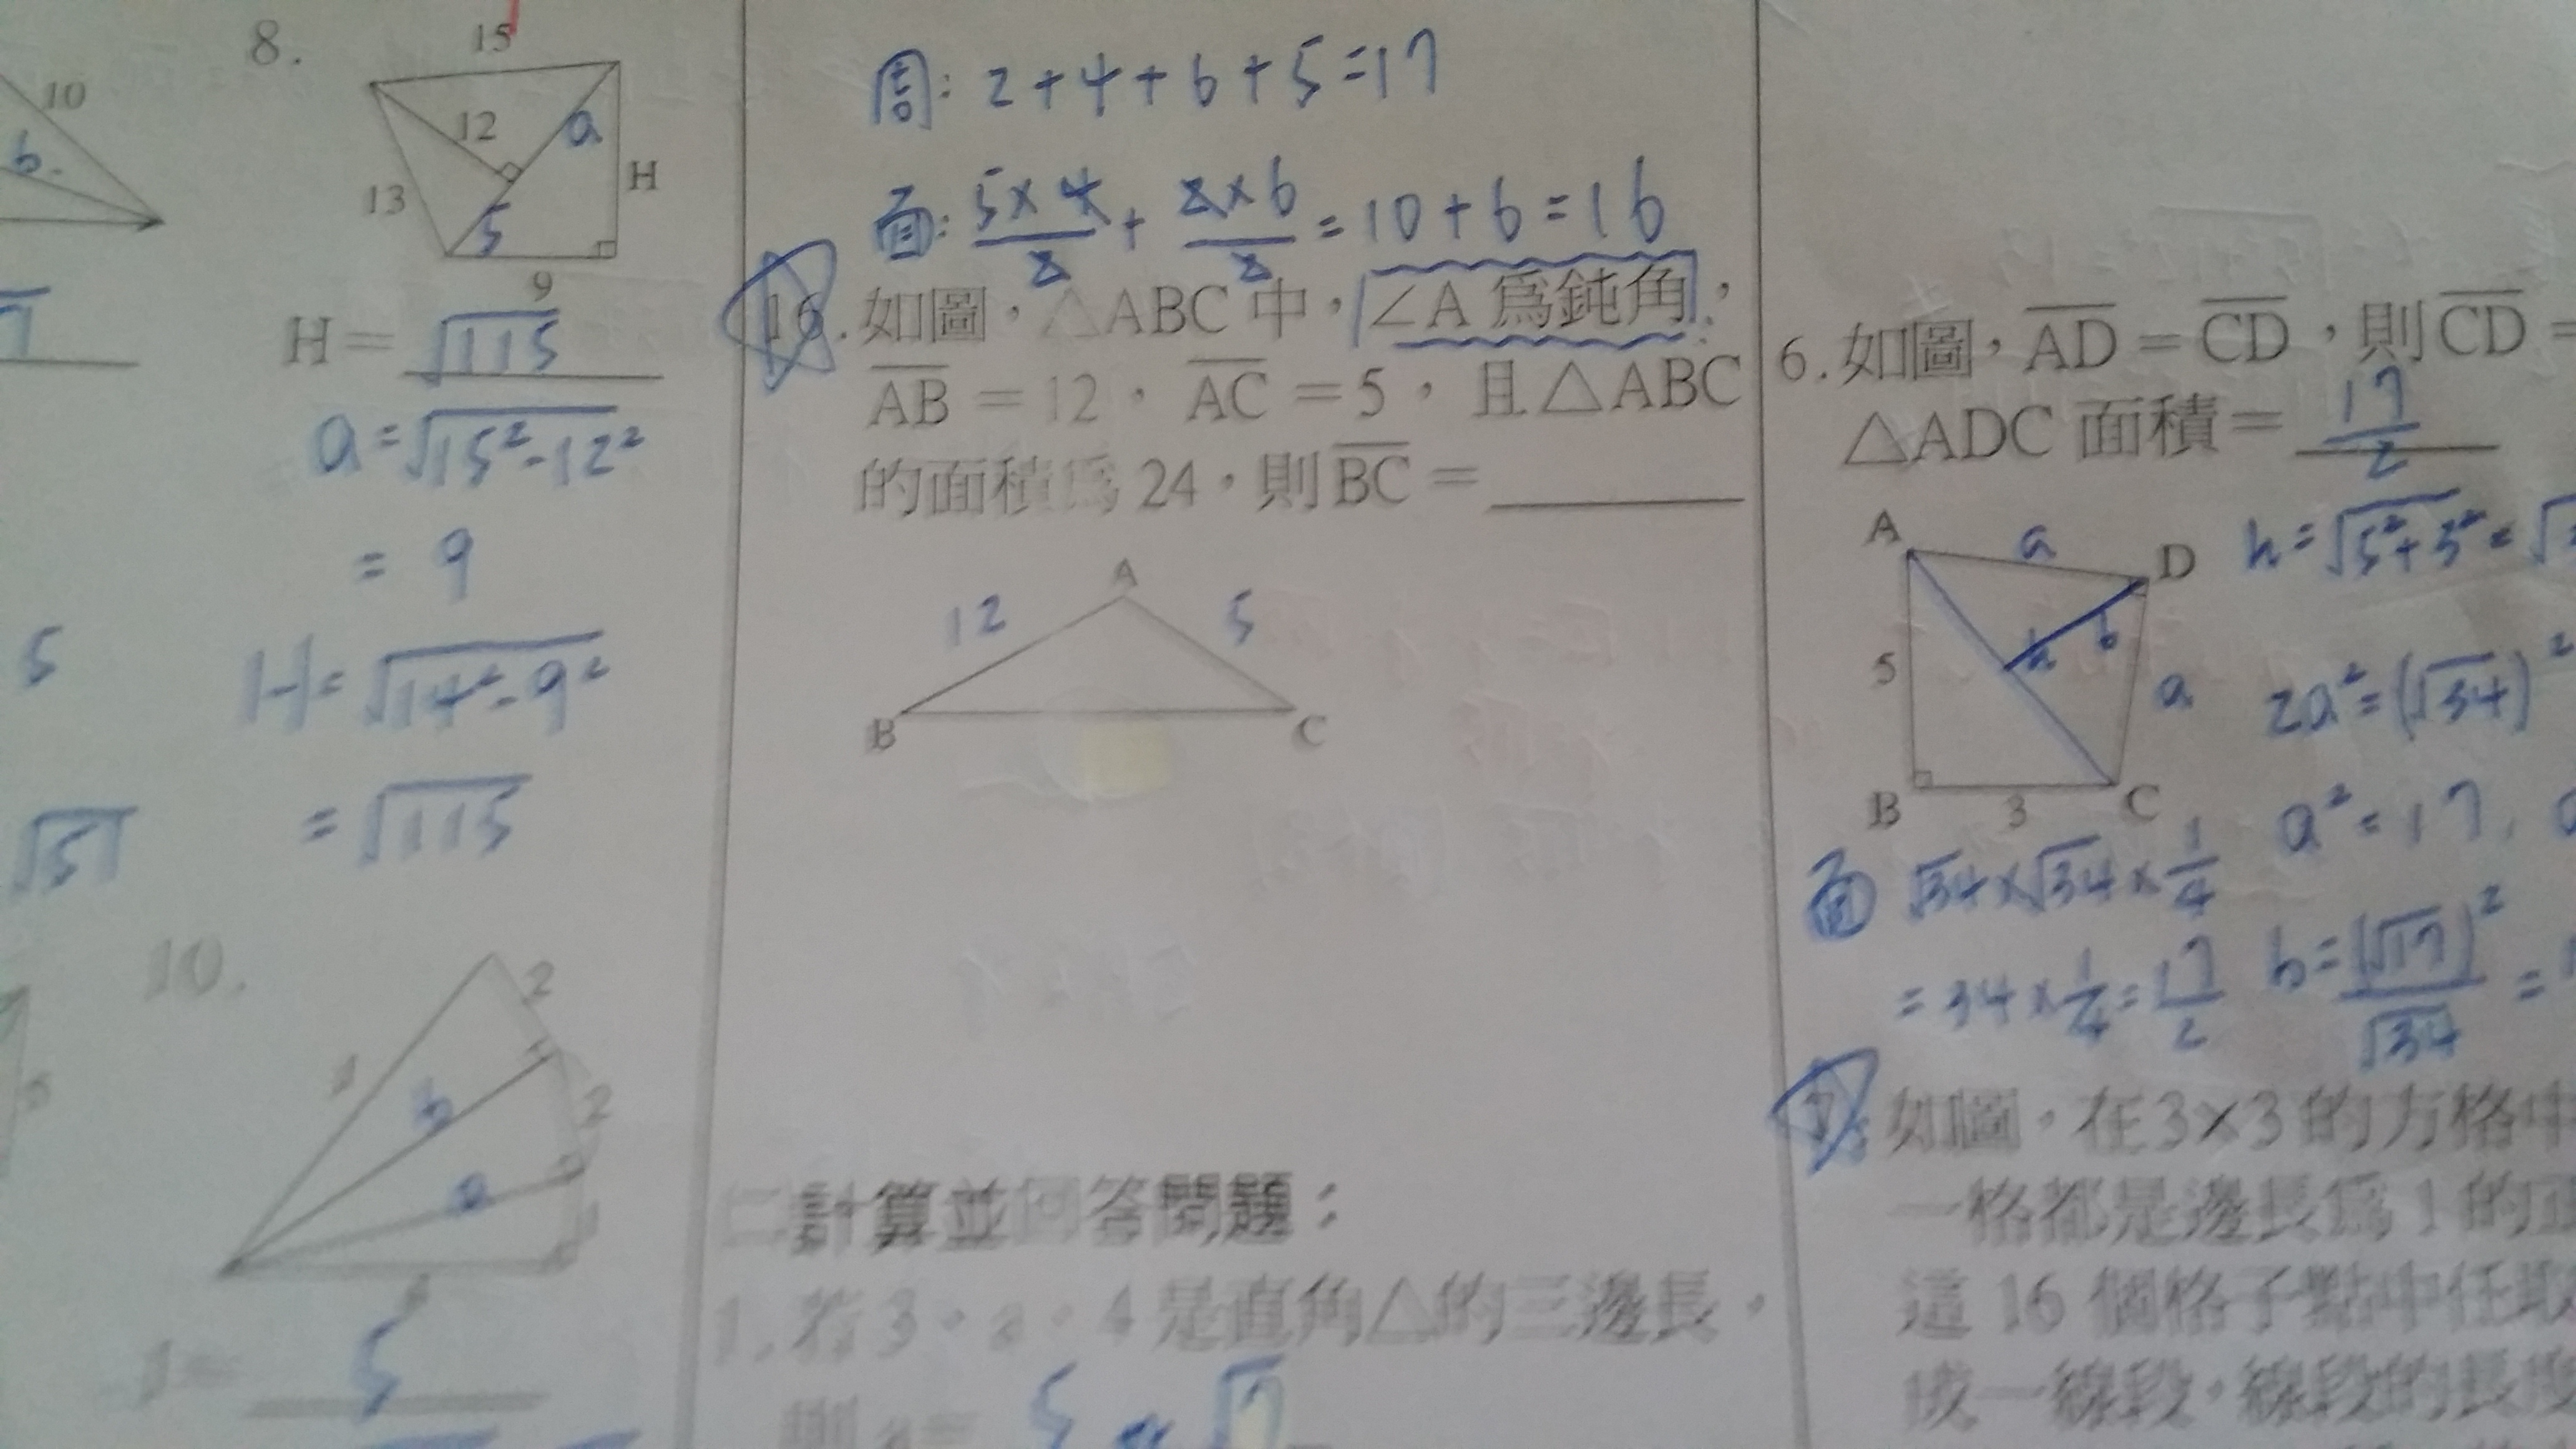 10
b.
5
√51
8.
15
12
a
H
13
5
9
H=√115
a=√15²-12²
= 9
H=√14²-9²
=√115
10.
2
b
2
a
5
周: 2+4+6+5=17
面: 5×4/2 + 2×6/2 = 10+6=16
16.如圖,△ABC中,∠A 爲鈍角,
AB=12,AC=5,且△ABC
的面積爲24,則BC=
A
12
5
B
C
二計算並回答問題:
1.若3、a、4是直角△的三邊長,
則a= 5 √7
6.如圖,AD=CD,則CD=
△ADC 面積= 17/2
A
a
D
h=√5²+3²=√
5
b
a
2a²=(√34)²
B
3
C
a²=17,
面 √34×√34×1/4
=34×1/4=17/2
b=(√17)²/√34=
7.如圖,在3×3的方格中
一格都是邊長爲1的正
這16個格子點中任取
成一線段,線段的長度